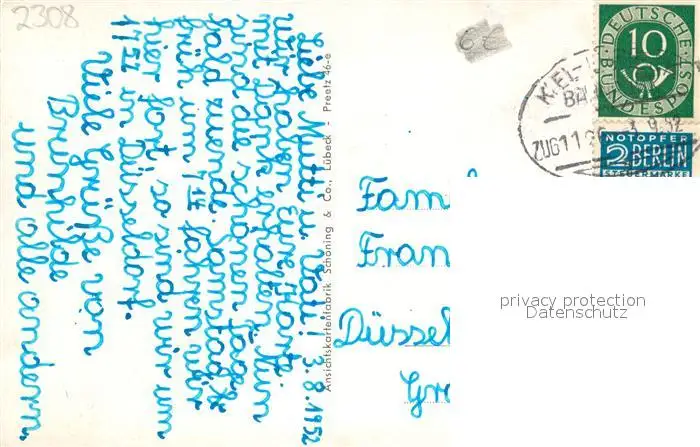 2308
Liebe Mutti u. Vati! 3.8.1952
wir haben Eure Karte
mit Dank erhalten. Nun
sind die schönen Tage
bald zuende. Samstag
früh um 7 fahren wir
hier fort so sind wir um
17 52 in Düsseldorf.
Viele Grüße von
Brunhilde
und alle andern.
Ansichtskartenfabrik Schöning & Co., Lübeck - Preetz 46-e
DEUTSCHE
BUNDESPOST
10
KIEL-
BA
ZUG 11
3.9.52
NOTOPFER
2 BERLIN
STEUERMARKE
Fam
Fran
Düssel
Gr
privacy protection
Datenschutz